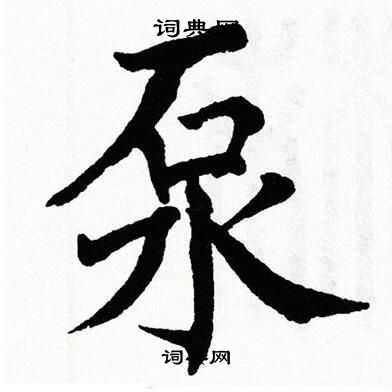 词典网
泵
词典网